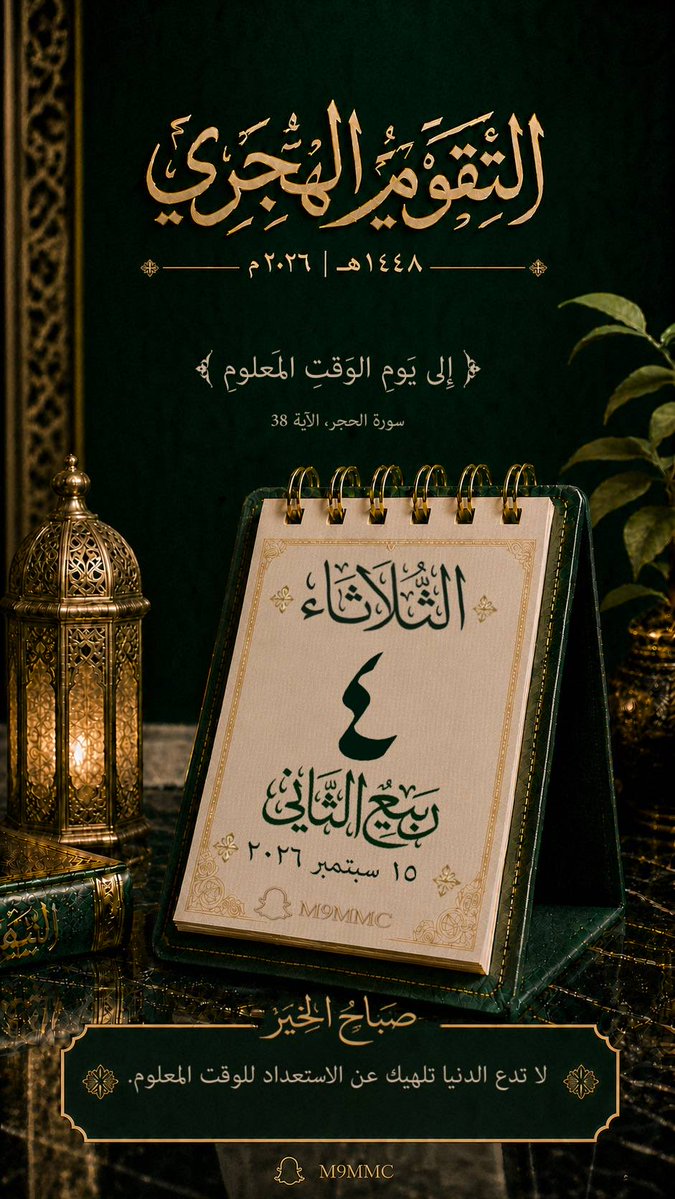 التَّقْوَيْمُ الهِجْرِي
١٤٤٨هـ | ٢٠٢٦م
﴿ إِلى يَومِ الوَقتِ المَعلومِ ﴾
سورة الحجر، الآية 38
الثُّلَاثَاء
٤
رَبِيعُ الثَّانِي
١٥ سبتمبر ٢٠٢٦
M9MMC
صَبَاحُ الخَيْر
لا تدع الدنيا تلهيك عن الاستعداد للوقت المعلوم.
M9MMC